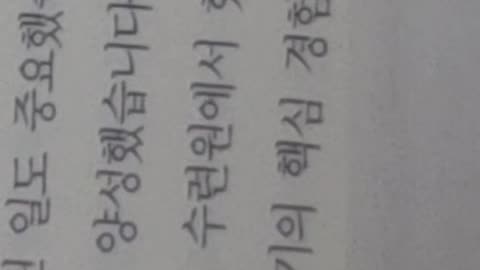 일도 중요했
양성했습니다
수련원에서
기의 핵심 경험